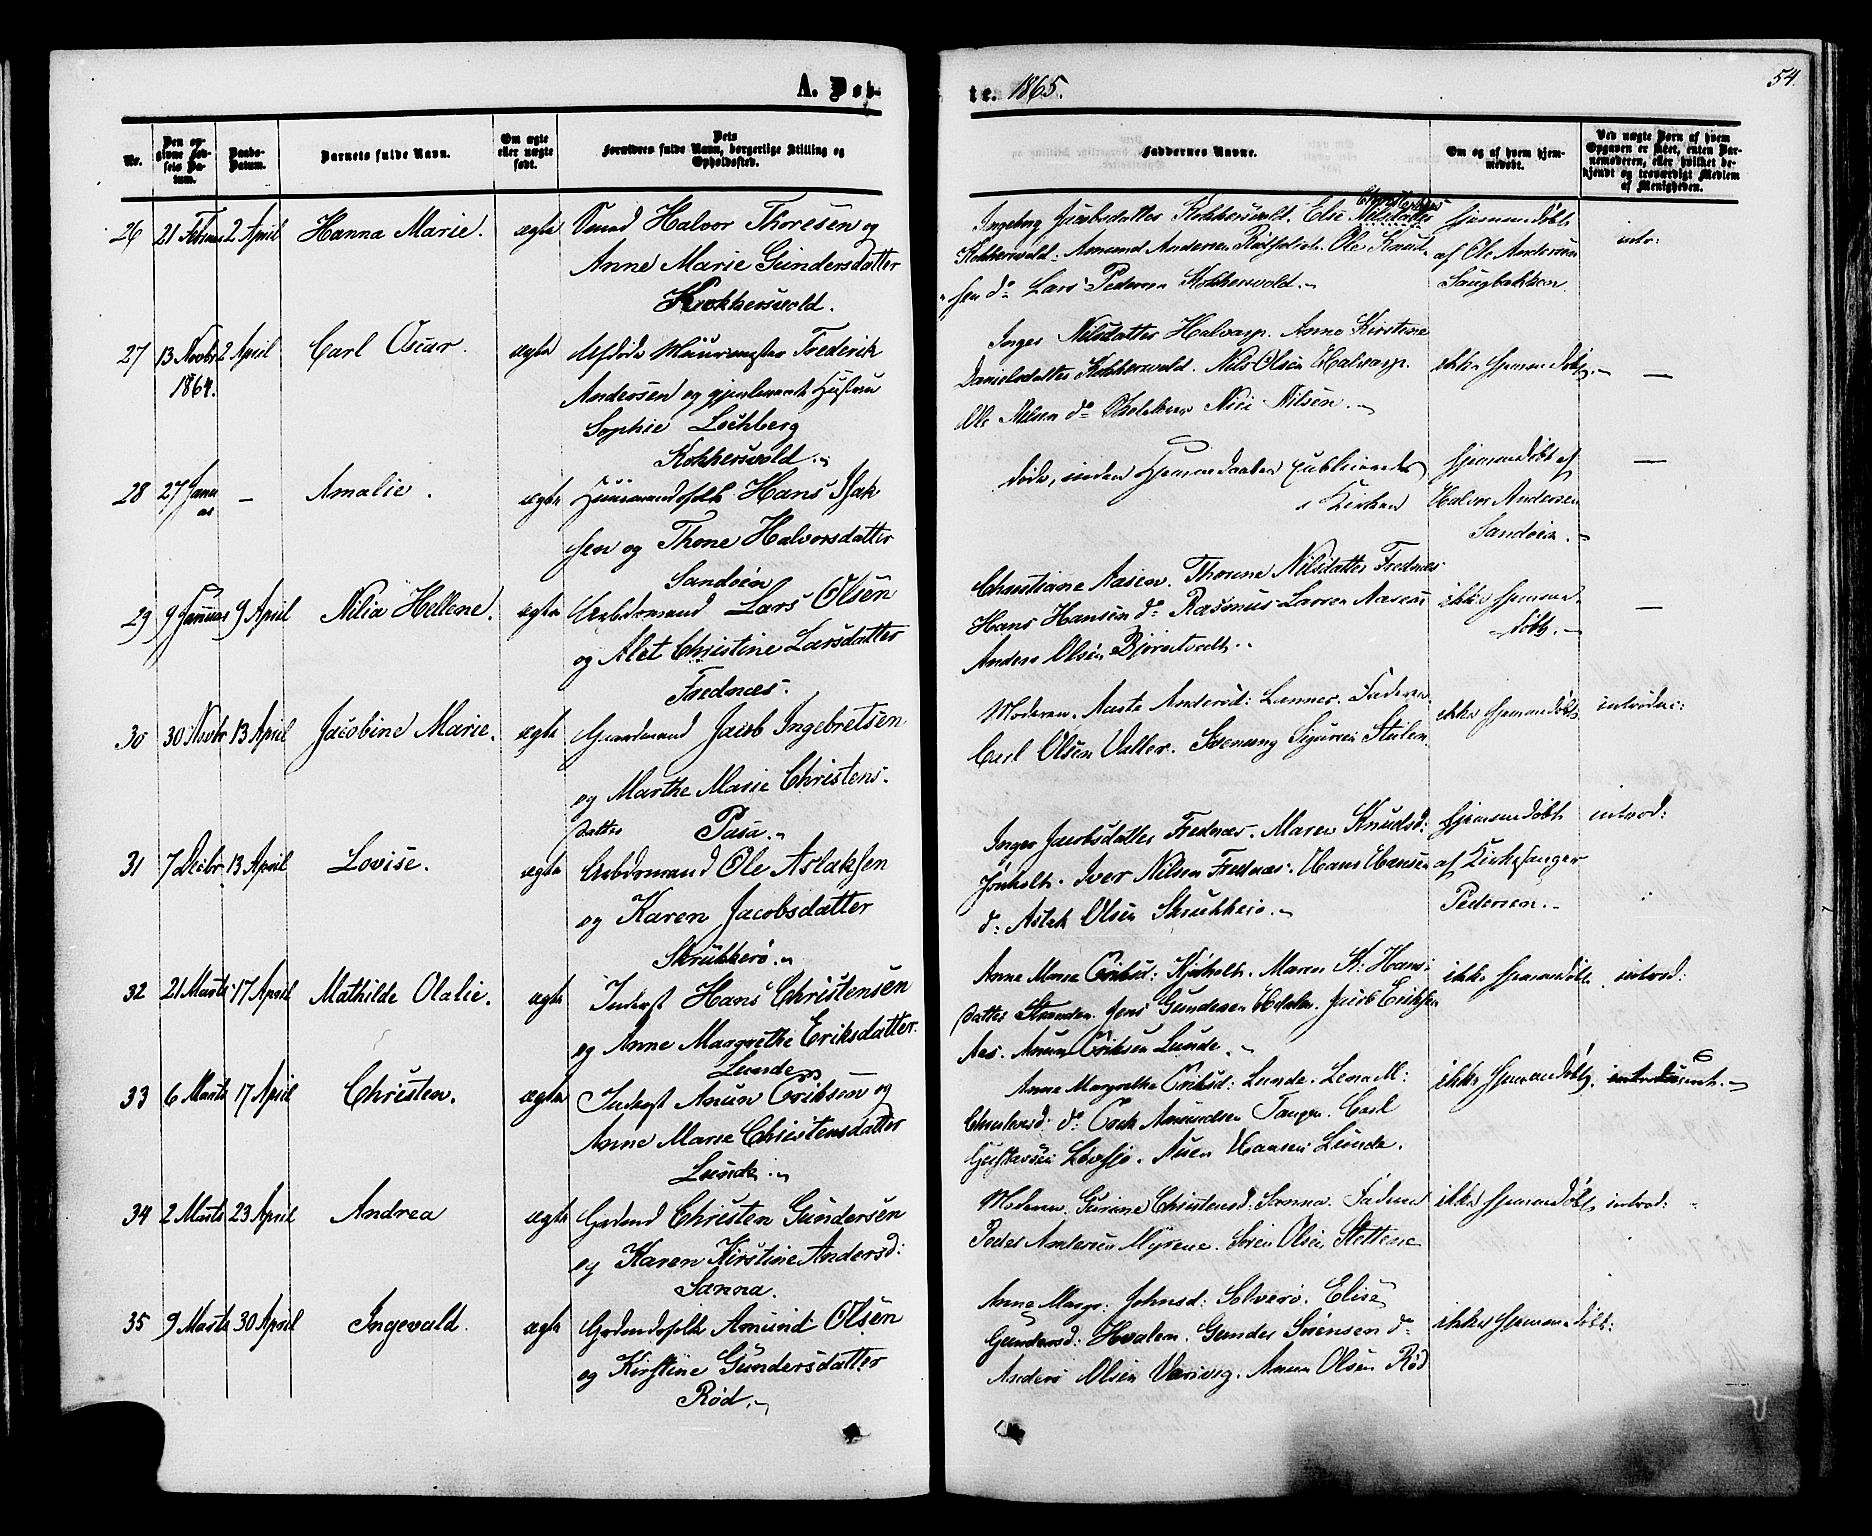 A. Døb-
te. 1865.
54.
Nr.
Den op-
givne Fød-
sels Da-
tum.
Daabs-
Datum.
Barnets fulde Navn.
Om ægte
eller uægte
født.
Dets
Forældres fulde Navn, borgerlige Stilling og
Opholdssted.
Faddernes Navne.
Om og af hvem hjem-
medøbt.
Ved uægte Børn af hvem
Opgaven er skeet, enten Bar-
nemoderen, eller hvilket be-
kjendt og troværdigt Medlem
af Menigheden.
26 21 Februar 2 April Hanna Marie. ægte Halvor Thoresen og
Anne Marie Gundersdatter
Kokkersvold.
Ingeborg Jacobsdatter Kokkersvold. Elie Nilsdatter
Kokkersvold: Amund Andersen Ole Knud-
sen do Lars Pedersen Kokkersvold.
hjemmedøbt
af Ole Andersen
Saugbakken
intr:
27 13 Novbr 2 April Carl Oscar. ægte Afdøde Muurmester Frederik
1864.
Andersen og gjenlevende Hustru
Sophie Lochberg
Kokkersvold.
Inger Nilsdatter Halvarp. Anne Kirstine
Danielsdatter Kokkersvold. Nils Olsen Halvarp.
Ole Nilsen do Nici Nilsen.
ikke hjemmedøbt. —
28 27 Janu
ar — Amalie. ægte Huusmandsfolk Hans Isak
sen og Thone Halvorsdatter
Sandøen
døde, inden Hjemmedaaben publiceredes
i Kirken
hjemmedøbt af
Halvor Andersen
Sandøen.
—
29 9 Januar 9 April Nilia Hellene. ægte Arbdsmand Lars Olsen
og Alet Christine Larsdatter
Frednæs.
Christiane Aasen. Thorine Nilsdatter Frednæs
Hans Hansen do Rasmus Larsen Aasen
Anders Olsen Bjørntvedt.
ikke hjemme-
døbt.
—
30 30 Novbr 13 April Jacobine Marie. ægte Gaardmand Jacob Ingebretsen
og Marthe Marie Christens-
datter Pasa.
Moderen. Aaste Andersd: Lanner. Faderen
Carl Olsen Valler. Svenung Sigursen Stulen
ikke hjemmedøbt introduc:
31 7 Decbr 13 April Lovise. ægte Arbdsmand Ole Aslaksen
og Karen Jacobsdatter
Skrukkerø.
Inger Jacobsdatter Frednæs. Maren Knudsd:
Jønholt. Iver Nilsen Frednæs. Hans Hansen
do Aslak Olsen Skrukkerø.
hjemmedøbt
af Kirkesanger
Pedersen.
introd:
32 21 Marts 17 April Mathilde Olalie. ægte Inderst Hans Christensen
og Anne Margrethe Eriksdatter
Lunde
Anne Marie Eriksd: Kjøholt. Maren K: Hans-
datter Stranden. Jens Gundersen Hvalen. Jacob Eriksen
Aas. Anun Eriksen Lunde.
ikke hjemmedøbt. introd:
33 6 Marts 17 April Christen. ægte Inderst Anun Eriksen og
Anne Marie Christensdatter
Lunde.
Anne Margrethe Eriksd: Lunde. Lena M:
Christensd: do Erik Amundsen Tangen. Carl
Gustavsen Løvsjø. Anen Hansen Lunde.
ikke hjemmedøbt. introduceret.
34 2 Marts 23 April Andrea ægte Grdmd Christen Gundersen
og Karen Kirstine Andersd:
Sanna.
Moderen. Gurine Christensd: Sanna. Faderen
Peder Andersen Myrene. Søren Olsen Stettene
ikke hjemmedøbt introd:
35 9 Marts 30 April Ingevald. ægte Grdmdsfolk Amund Olsen
og Kirstine Gundersdatter
Rød.
Anne Margr: Johnsd: Solverø. Elise
Gundersd: Hvalen. Gunder Sørensen do
Anders Olsen Anun Olsen Rød
ikke hjemmedøbt: